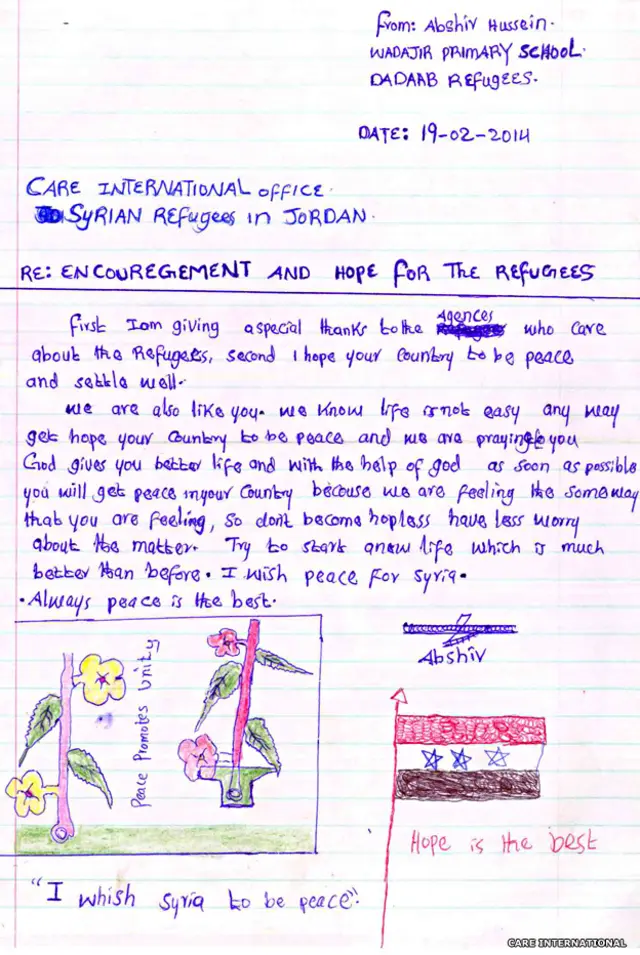 From: Abshiv Hussein.
WADAJIR PRIMARY SCHOOL.
DADAAB REFugees.
DATE: 19-02-2014
CARE INTERNATIONAL office.
SYRIAN REFugees in JORDAN.
RE: ENCOUREGEMENT AND HOPE foR The REFUGEES
first I am giving a special thanks to the Agences who care
about the Refugees, second I hope your Country to be peace
and settle well.
we are also like you. we know life is not easy any way
get hope your Country to be peace and we are praying to you
God gives you better life and with the help of god as soon as possible
you will get peace in your Country becouse we are feeling the some way
that you are feeling, so dont become hopless have less worry
about the matter. Try to start a new life which is much
better than before. I wish peace for syria.
. Always peace is the best.
Abshiv
Peace Promotes Unity
Hope is the best
"I whish Syria to be peace".
CARE INTERNATIONAL